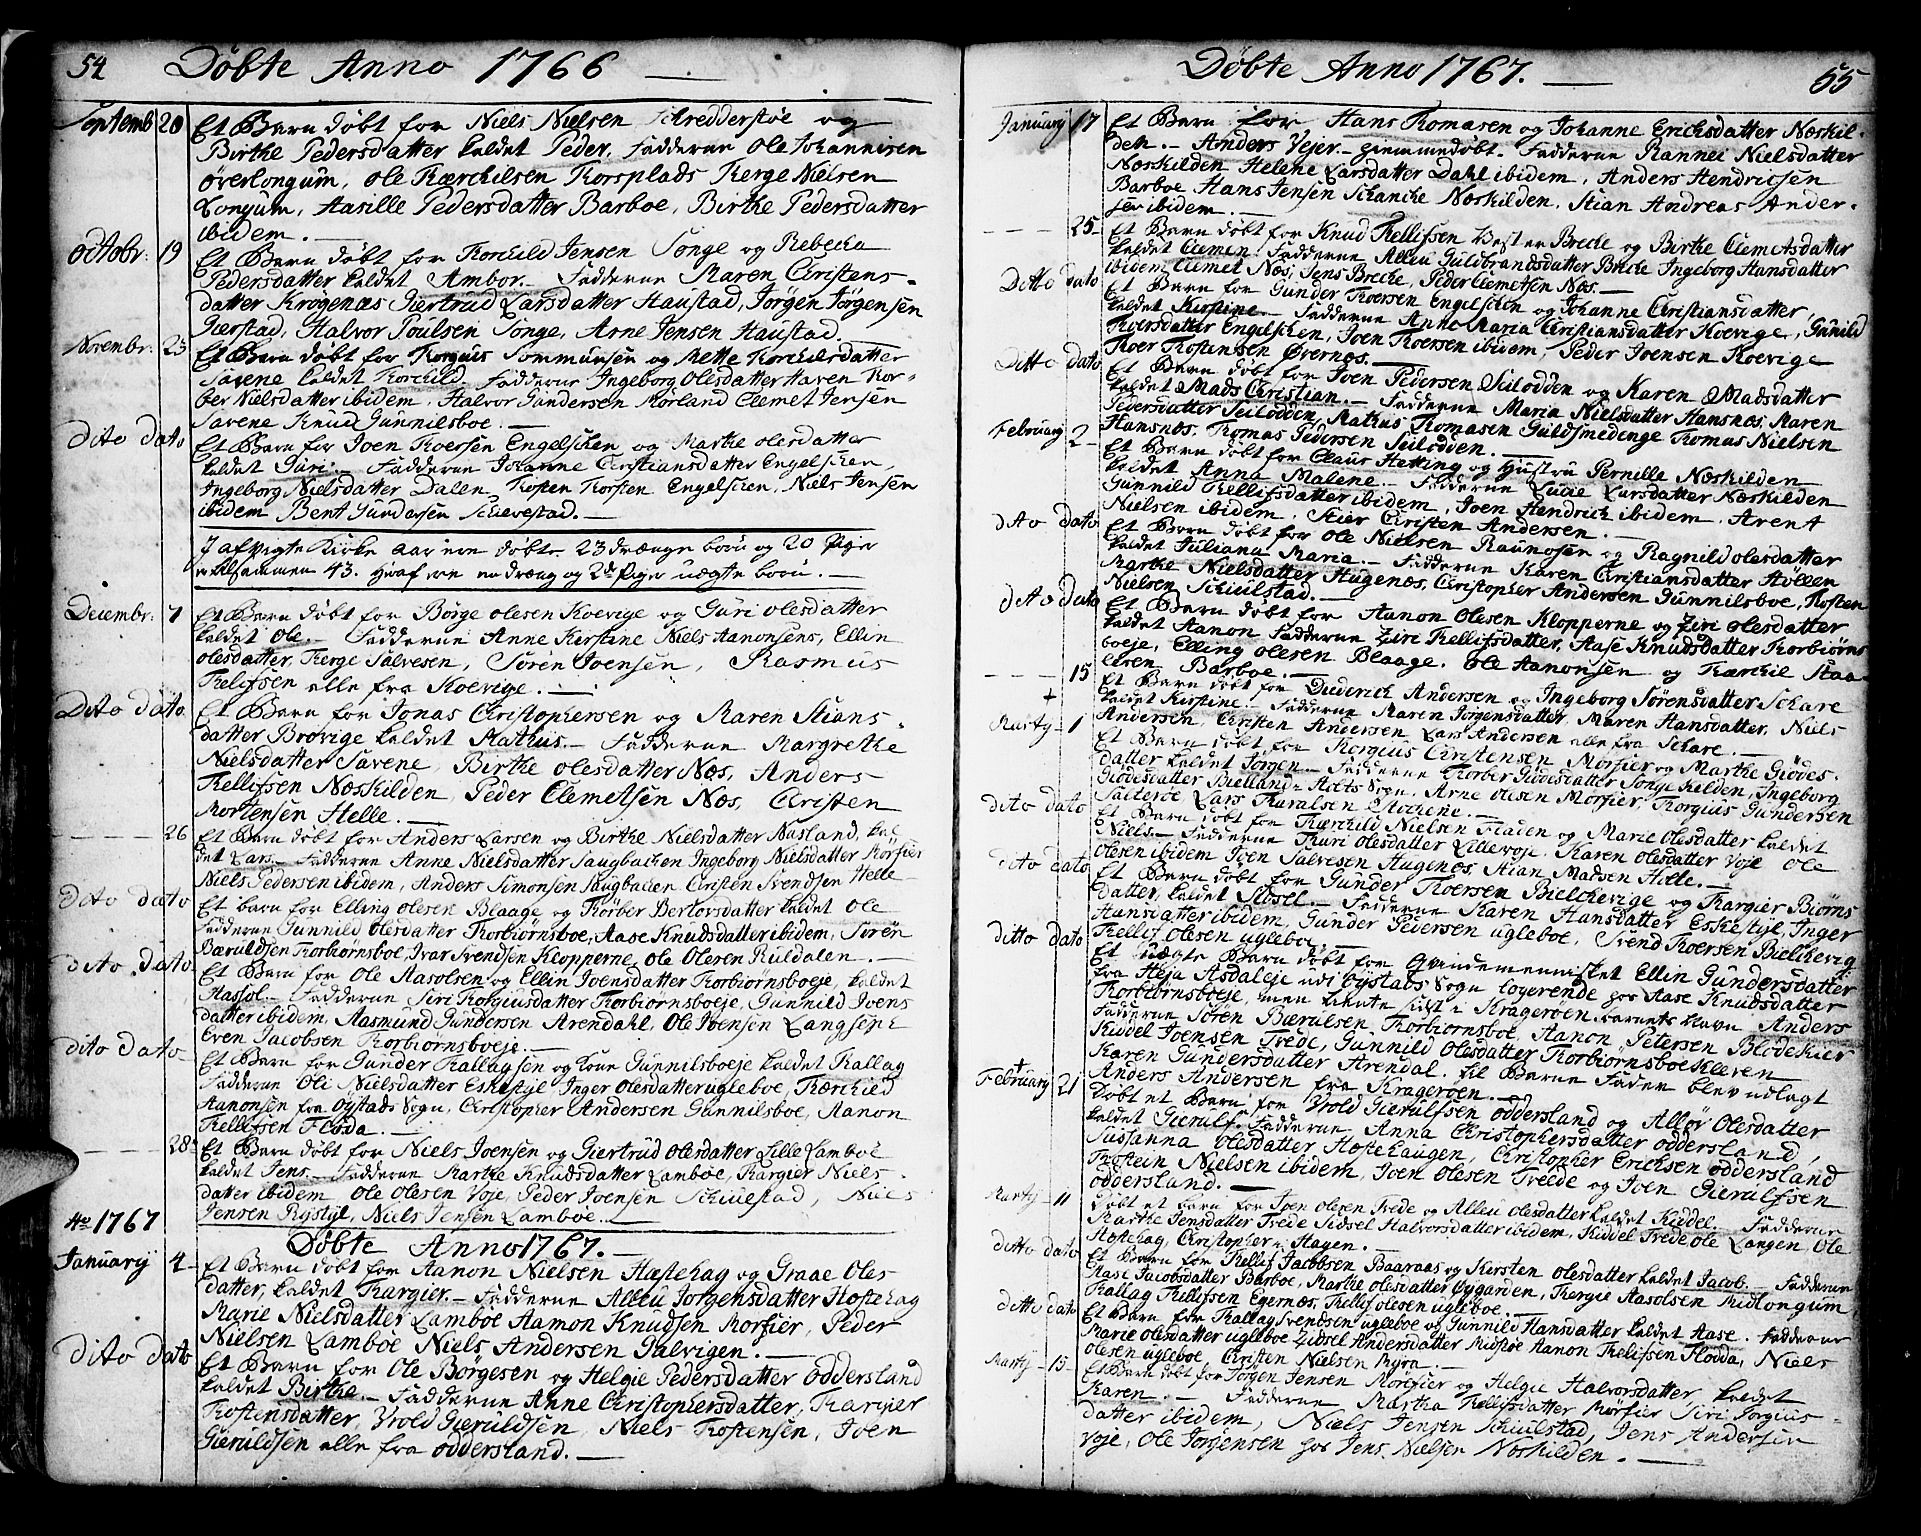 54 Døbte Anno 1766
Septemb 20 Et Barn døbt for Niels Nielsen Schredderstøe og
Birthe Pedersdatter kaldet Peder, Fadderne Ole Johannisen
øverlongum, Ole Kærchilsen Torsplads Terge Nielsen
Longum, Aasille Pedersdatter Barboe, Birthe Pedersdatter
ibidem.
octobr: 19 Et Barn døbt for Torchild Jensen Songe og Rebecha
Pedersdatter kaldet Ambor. Fadderne Maren Christens-
datter Krogenæs Giertrud Larsdatter Haustad, Jørgen Jørgensen
Gierstad, Halvor Poulsen Songe, Arne Jensen Haustad.
Novembr: 23 Et Barn døbt for Torguis Sommunsen og Mette Torchilsdatter
Savene kaldet Torchild. Fadderne Ingeborg Olesdatter Haven Tor-
ber Nielsdatter ibidem. Halvor Gundersen Morland Clemet Jensen
Savene Knud Gunnilsboe.
dito dato Et Barn for Joen Thoersen Engelschen og Marthe olesdatter
kaldet Guri. Fadderne Johanne Christiansdatter Engelschen,
Ingeborg Nielsdatter Dalen, Tosten Torsten Engelschen, Niels Jensen
ibidem Bent Gundersen Schievestad.
J afvigte Kirke aar ere døbte 23 drænge børn og 20 Piger
er tilsammen 43. Hvaf ere en dræng og 2de Piger uægte børn.
Deiembr: 7 Et Barn døbt for Børge olesen Koevige og Guri olesdatter
kaldet Ole. Fadderne Anne Kirstine Niels Aanonsens, Ellin
olesdatter, Terge Salvesen, Søren Joensen, Rasmus
Thelifsen alle fra Koevige.
Dito dato Et Barn for Jonas Christophersen og Maren Stians-
datter Brøvige kaldet Mathus. Fadderne Margrethe
Nielsdatter Savene, Birthe olesdatter Næs, Anders
Thellifsen Næskilden, Peder Clemetsen Næs, Christen
Mortensen Helle.
26 Et Barn døbt for Anders Larsen og Birthe Nielsdatter Nasland, kal
det Lars. Fadderne Anne Nielsdatter Saugbachen Ingeborg Nielsdatter Mørfier
Niels Pedersen ibidem, Anders Simonsen Saugbachen Christen Svendsen Helle
dito dato Et barn for Elling olesen Blaage og Thorber Bertorsdatter kaldet Ole
Fadderne Gunnild olesdatter Torbiørnsboe, Aase Knudsdatter ibidem, Søren
Bæruldsen Torbiørnsboe, Ivar Svendsen Klopperne, ole Olesen Ruldalen.
dito dato Et Barn for Ole Aasolsen og Ellin Joensdatter Torbiørnsboeje, kaldet
Aassol. Fadderne Siri Torgiusdatter Torbiornsboeje, Gunnild Joens
datter ibidem, Aasmund Gundersen Arendahl, Ole Joensen Langseni
Even Jacobsen Torbiornsboeje.
dito dato Et Barn for Gunder Tallagsen og kone Gunnilsboeje kaldet Rallag
Fadderne Oli Nielsdatter Eskestje Inger Olesdatter ugleboe, Tærchild
Aanonsen fra Øystads Sogn, Christopher Andersen Gunnilsboe, Aanon
Thellifsen Floda.
28 Et Barn døbt for Niels Joensen og Giertrud olesdatter Lille Lamboe
kaldet Jens. Fadderne Marthe Knudsdatter Lamboe, Kargier Niels-
datter ibidem Ole Olesen Voje, Peder Joensen Schiulstad, Niels
Jensen Rystyl, Niels Jensen Lamboe.
Ao 1767 Døbte Anno 1767.
Januarij 4 Et Barn døbt for Aanon Nielsen Hæstehag og Graae Oles
datter, kaldet Kargier. Fadderne Alleu Jorgensdatter Hostehag
Marie Nielsdatter Lamboe Aamon Knudsen Morfier, Peder
Nielsen Lamboe Niels Andersen Galvigen.
dito dato Et Barn for Ole Børgesen og Helgie Pedersdatter oddersland
kaldet Birthe. Fadderne Anne Christophersdatter, Kargier
Tostensdatter, Vrold Gieruldsen, Niels Tostensen, Joen
Gieruldsen alle fra oddersland.
Døbte Anno 1767. 55
Januarij 17 Et Barn for Hans Thomasen og Johanne Erichsdatter Næskil-
den. Anders Vejer giemmedøbt. Fadderne Rannei Nielsdatter
Næskilden Helene Larsdatter Dahl ibidem, Anders Hendricsen
Barboe Hans Jensen Schanche Næskilden, Stian Andreas Ander-
sen ibidem.
25 Et Barn døbt for Knud Thellifsen Vester Breche og Birthe Clemetsdatter
kaldet Clemen. Fadderne Alleu Guldbrandsdatter Breche Ingeborg Hansdatter
ibidem, Clemet Næs, Jens Breche, Peder Clemetsen Næs.
Ditto dato Et Barn for Gunder Thoersen Engelschen og Johanne Christiansdatter,
kaldet Kirstine. Fadderne Anne Maria Christiansdatter Koevige, Gunild
Thoersdatter Engelschen, Joen Thoersen ibidem, Peder Joensen Koevige
Thoer Tostensen Øvernæs.
Ditto dato Et Barn døbt for Joen Pedersen Seilodden og Karen Madsdatter
kaldet Mads Christian. Fadderne Maria Nielsdatter Hansnæs, Maren
Pedersdatter Seilodden, Mathus Thomasen Guldsmedenge Thomas Nielsen
Hansnæs, Thomas Pedersen Seilodden.
Februarij 2 Et Barn døbt for Claus Hetting og Hustru Pernille Næskilden
kaldet Anna Malene. Fadderne Lucie Larsdatter Næskilden
Gunnild Thellifsdatter ibidem, Joen Hendrich ibidem, Arent
Nielsen ibidem, Stier Christen Andersen.
dito dato Et Barn døbt for Ole Nielsen Raunosen og Ragnild olesdatter
kaldet Juliana Maria. Fadderne Karen Christiansdatter Høllen
Marthe Nielsdatter Augenæs, Christopher Andersen Gunnilsboe, Tosten
Nielsen Schiulstad.
dito dato Et Barn døbt for Aanon Olesen Klopperne og Ziri olesdatter
kaldet Aanon Fadderne Ziri Thellifsdatter, Aase Knudsdatter Torbiørns
boeje, Elling olesen Blaage, Ole Aanonsen og Kærchil Staa-
elsen Barboe.
15 Et Barn døbt for Diderich Andersen og Ingeborg Sørensdatter Schare
kaldet Kirstine. Fadderne Maren Jorgensdatter, Maren Hansdatter, Niels
Andersen, Christen Andersen Lars Andersen alle fra Schare.
Martij 1 Et Barn døbt for Torguis Christensen Mørfier og Marthe Giødes-
datter kaldet Jorgen. Fadderne Thorber Giødesdatter Songe kelden, Ingeborg
Giødesdatter Bielland i Holts Sogn, Arne Olesen Morfier, Torguis Gundersen
Salterøe Lars Tharalsen Stochene.
dito dato Et Barn døbt for Tærchild Nielsen Fladen og Marie olesdatter kaldet
Niels. Fadderne Thuri olesdatter Lillevoje, Karen olesdatter Voje Ole
olesen ibidem Joen Salvesen Augenæs, Stian Madsen Helle.
dito dato Et Barn døbt for Gunder Thoersen Bielchevige og Kargier Biørns
datter, kaldet Sibsel. Fadderne Karen Hansdatter Eskestje, Inger
Hansdatter ibidem, Gunder Pedersen ugleboe, Svend Thoersen Bielchevig,
Thellif olesen ugleboe.
ditto dato Et uægte Barn døbt for Qvindemennisket Ellin Gundersdatter
fra Heja Asdaleje udi Øystads Sogn logerende hos Aase Knudsdatter
Torbiørnsboeje, men tiente sidst i Kragerøen. barnets Navn Anders
Fadderne Søren Bærulsen, Torbiornsboe, Aanon Petersen Blødekier
Kiddel Joensen Trede, Gunnild Olesdatter Torbiørnsboe Kleven
Karen Gundersdatter Arendal. til Barne Fader blev udlagt
Anders Andersen fra Kragerøen.
Februarij 21 Døbt et Barn for Vrold Gierulfsen oddersland og Allør Olesdatter
kaldet Gierulf. Fadderne Anna Christophersdatter oddersland,
Sussanna olesdatter Hostehaugen, Christopher Erichsen oddersland
Trostein Nielsen ibidem, Joen Olesen Trede og Joen Gierulfsen
oddersland.
Martij 11 Døbt et barn for Joen olesen Trede og Alleu olesdatter kaldet Kiddel. Fadderne
Marthe Jensdatter Trede Sidsel Halvorsdatter ibidem, Kiddel Trede ole Langen, Ole
Hostehag, Christopher i Hagen.
ditto dato Et Barn for Thellif Jacobsen Baaraas og Kirsten olesdatter kaldet Jacob. Fadderne
Aase Jacobsdatter Barboe, Marthe olesdatter Øygarden, Tergie Aasolsen Midlongum
Rallag Thellifsen Egernæs, Thellif olesen ugleboe.
ditto dato Et Barn for Tallag Svendsen ugleboe og Gunnild Hansdatter kaldet Aase. Fadderne
Marie olesdatter ugleboe Zidsel Andersdatter Midtbøe Aanon Thelifsen Flodda, Niels
olesen ugleboe, Christen Nielsen Myra.
Martij 15 Et Barn døbt for Jorgen Jensen Morefier og Helgie Halvorsdatter, kaldet
Karen. Fadderne Martha Thellifsdatter Mørfier Siri Torgius-
datter ibidem, Niels Jensen Schiulstad, Jens Andersen
Voje, Ole Jorgensen hos Jens Nielsen Næskilden.